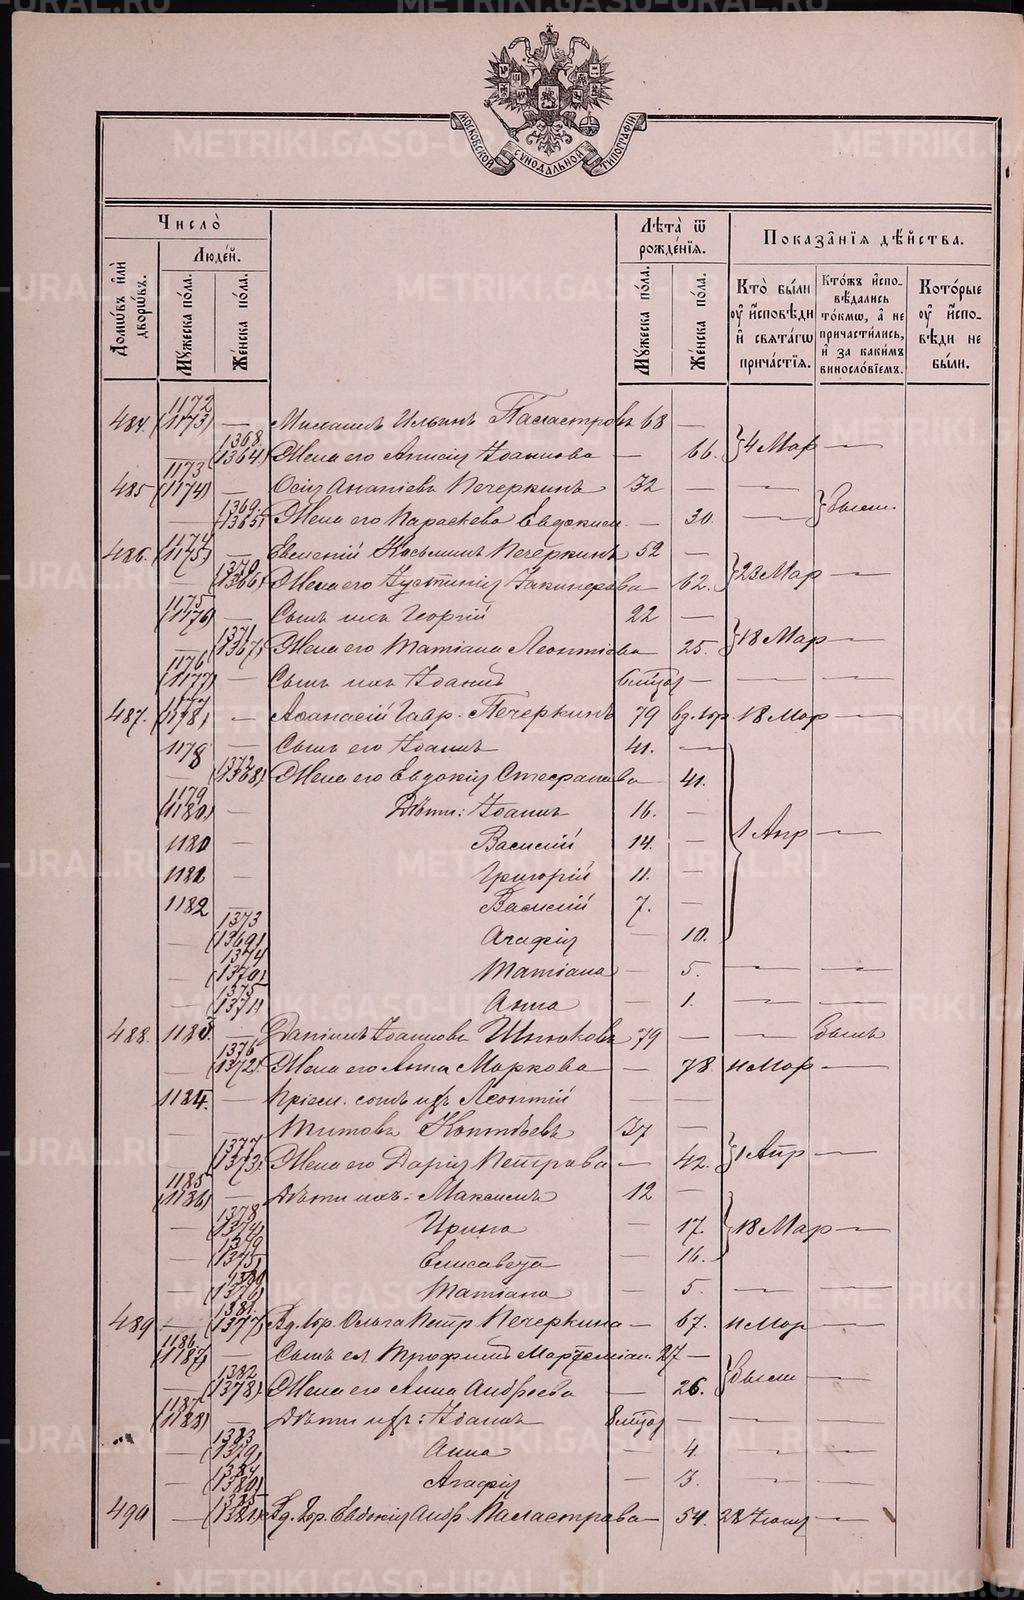 МОСКОВСКОЙ СУНОДАЛЬНОЙ ТИПОГРАФІИ
Число̀
Домѡвъ и҆лѝ дворѡвъ.
Люде́й.
Мꙋжеска по́ла.
Же́нска по́ла.
Лѣта̀ ѿ рожде́нїѧ.
Мꙋжеска по́ла.
Же́нска по́ла.
Показа̑нїѧ дѣ́йства.
Кто̀ бы́ли оу҆ и҆сповѣди и҆ свѧта́гѡ прича́стїѧ.
Кто́жъ и҆спо-вѣдались то́кмѡ, а҆ не причасти́лись, и҆ за каки́мъ винослові́емъ.
Кото́рые оу҆ и҆спо-вѣди не бы́ли.
484. 1172 (1173) — Михаилъ Ильинъ Паластровъ 68 —
— 1368. (1364) Жена его Анисія Іоаннова — 66. } 4 Мар —
485 1173 (1174) — Осія Ананіевъ Печеркинъ 32 — — —
— 1369. (1365) Жена его Параскева Евдоким. — 30. —
486. 1174 (1175) — Евгеній Косьминъ Печеркинъ 52 —
— 1370 (1366) Жена его Іустинія — 62. } 23 Мар —
1175 (1176) — Сынъ ихъ Георгій 22 —
— 1371 (1367) Жена его Татіана Леонтіева — 25. } 18 Мар —
1176 (1177) — Сынъ ихъ Іоаннъ — — —
487. 1177 (1178) — Аѳанасій Гавр. Печеркинъ 79 18 Мар —
1178 — Сынъ его Іоаннъ 41. —
— 1372 (1368) Жена его Евдокія Стефанова — 41.
1179 (1180) — Дѣти: Іоаннъ 16. —
1180 — Василій 14. — } 1 Апр —
1181 — Григорій 11. —
1182 — Василій 7. —
— 1373 (1369) Агафія — 10.
— 1374 (1370) Татіана — 5. — —
— 1375 (1371) Анна — 1. — —
488. 1183. — Даніилъ Іоанновъ 79 — —
— 1376 (1372) Жена его Анна Маркова — 78 11 Мар —
1184. — Леонтій — —
— Титовъ 37 —
— 1377 (1373) Жена его Дарія Петрова — 42. } 1 Апр —
1185 (1186) — Дѣти ихъ: Максимъ 12 —
— 1378 (1374) Ирина — 17. } 18 Мар —
— 1379 (1375) Елисавета — 16.
— 1380 (1376) Татіана — 5. — —
489 — 1381. (1377) Вд. Ольга Петр. Печеркина — 67. 11 Мар —
1186. (1187) — Сынъ ея Трофимъ 27 —
— 1382 (1378) Жена его Анна Андреева — 26. —
1187 (1188) — Дѣти ихъ: Іоаннъ — — —
— 1383 (1379) Анна — 4. — —
— 1384 (1380) Агафія — 3. — —
490 — 1385 (1381) Вд. Евдокія Андр. Паластрова — 54. —
METRIKI.GASO-URAL.RU